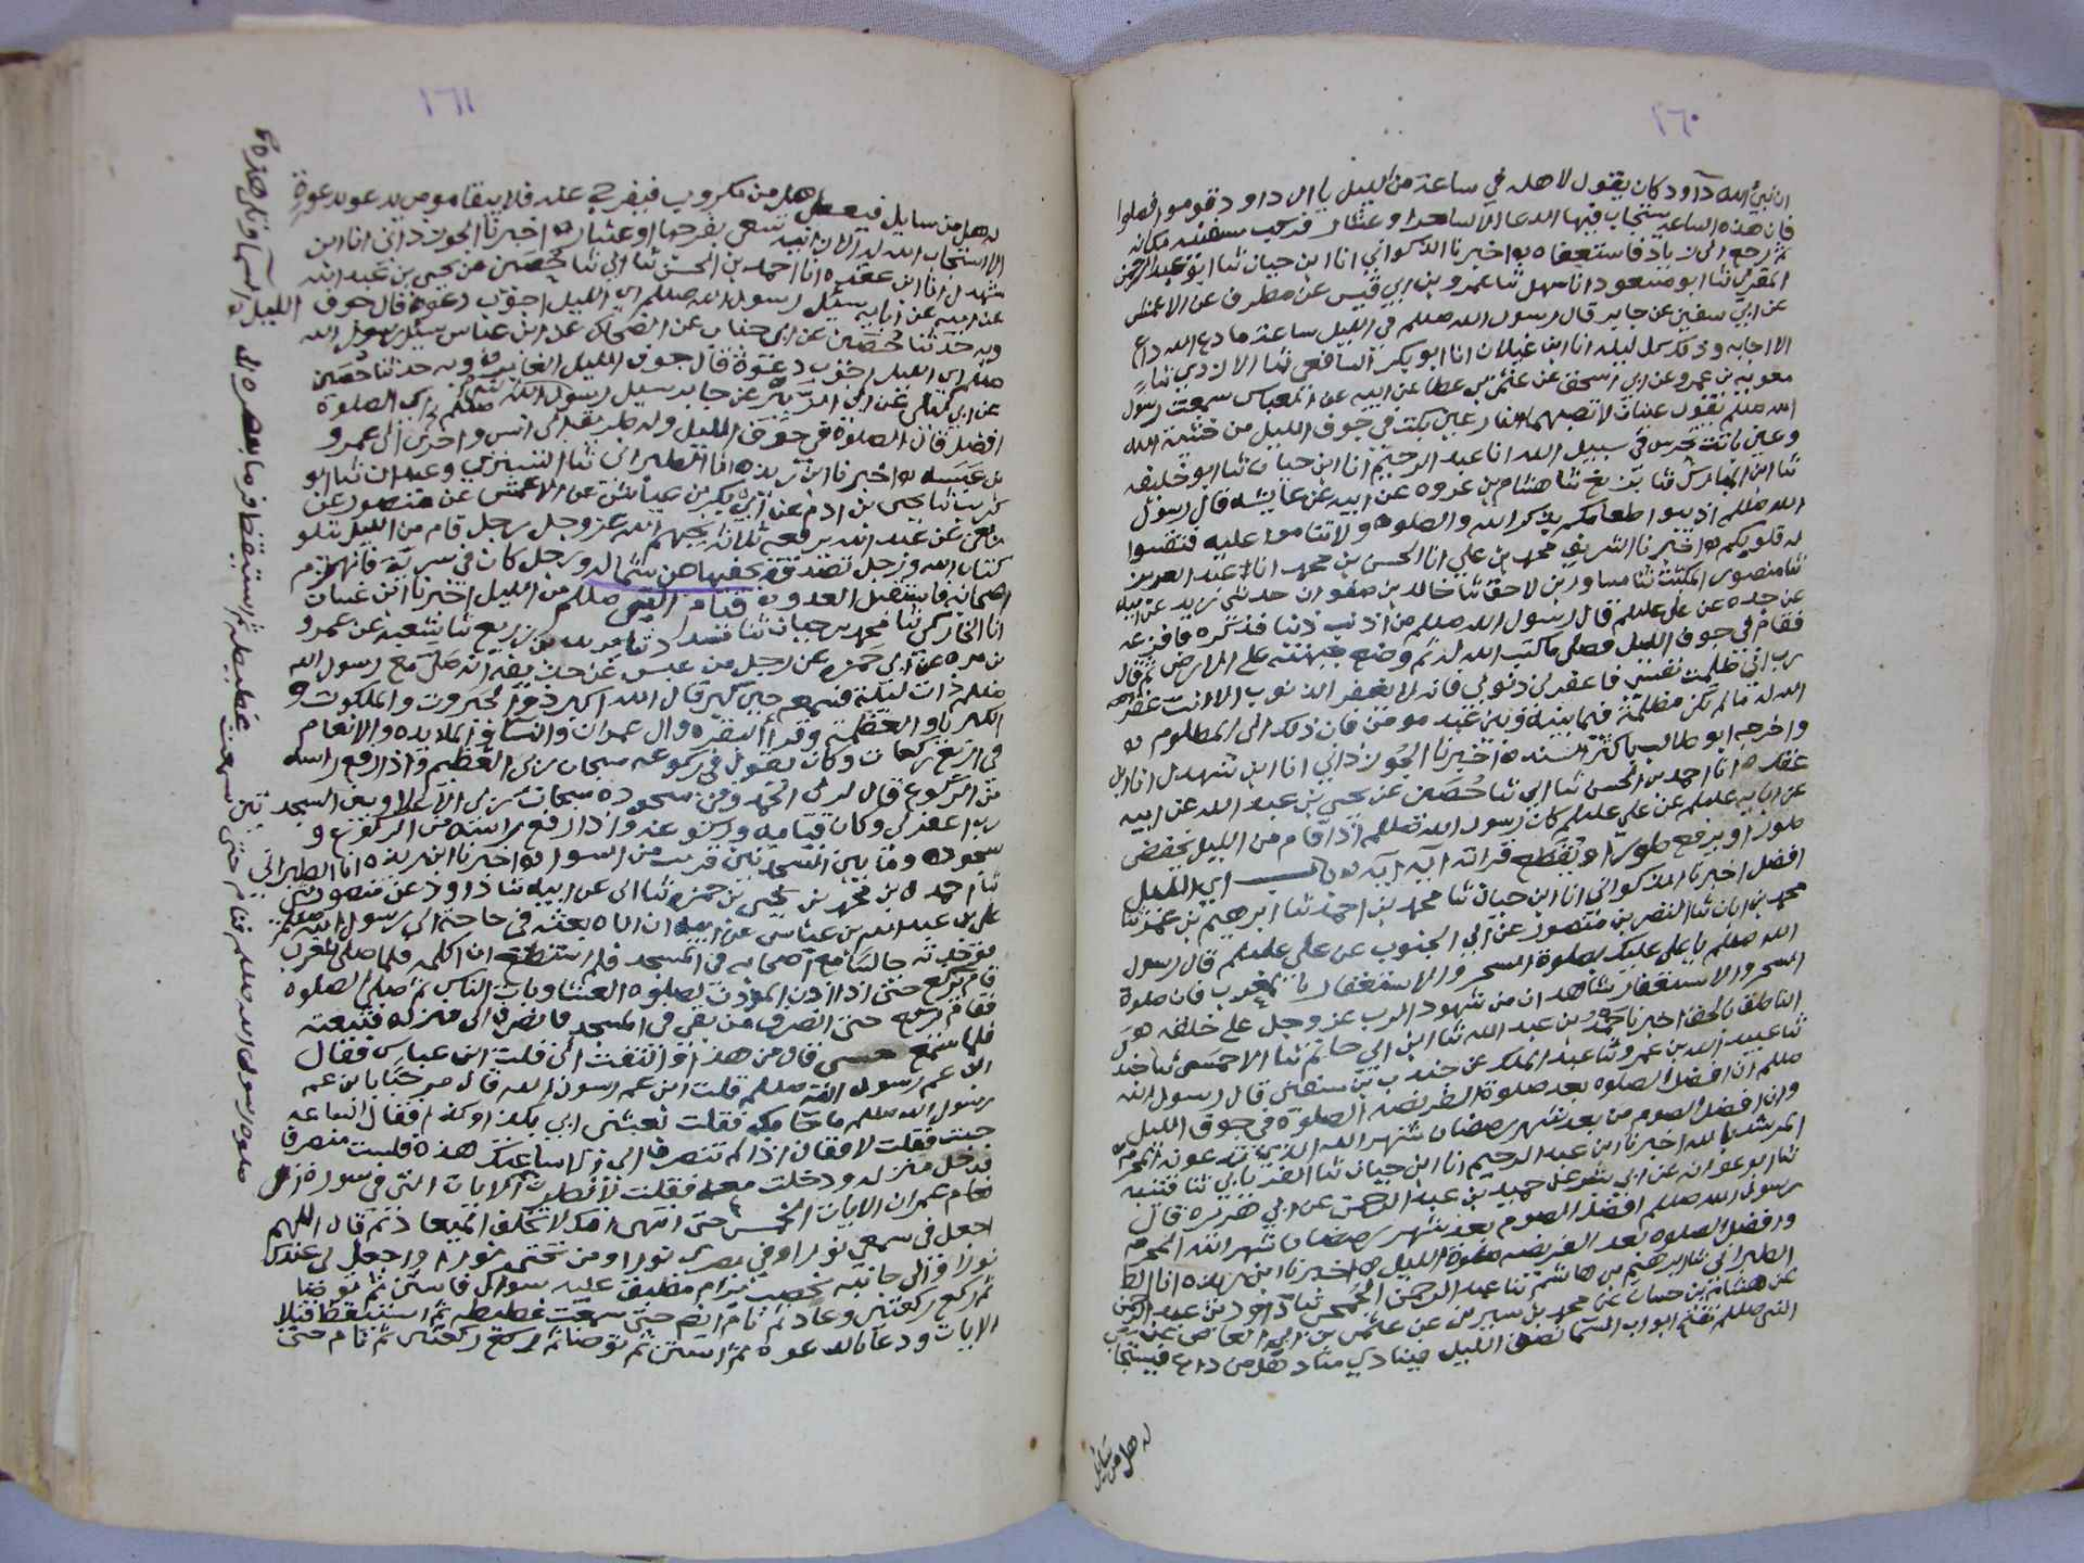 ١٦٠
ان نبي الله داود كان يقول لاهله في ساعة من الليل يا ال داود قوموا فصلوا
فان هذه الساعة يستجاب فيها الدعا الا لساحر او عشار فركب سفينه مكانه
ثم رجع الى زياد فاستعفاه اخبرنا الذكواني انا ابن حيان ثنا ابو عبد الرحمن
المقري ثنا ابو مسعود انا سهل ثنا عمرو بن ابي قيس عن مطرف عن الاعمش
عن ابي سفين عن جابر قال رسول الله صللم في الليل ساعة ما دعا الله داع
الا اجابه وذلك كل ليله انا ابن غيلان انا ابو بكر الشافعي ثنا الازدي ثنا
معويه بن عمرو عن ابي اسحق عن عثمن بن عطا عن ابيه عن ابن عباس سمعت رسول
الله صللم يقول عينان لا تصيبهما النار عين بكت في جوف الليل من خشية الله
وعين باتت تحرس في سبيل الله انا عبد الرحيم انا ابن حيان ثنا ابو خليفه
ثنا ابن المبارك ثنا بزيغ ثنا هشام بن عروه عن ابيه عن عايشه قال رسول
الله صللم اذيبوا طعامكم بذكر الله والصلوه ولا تناموا عليه فتقسوا
له قلوبكم اخبرنا الشريف محمد بن علي انا الحسن بن محمد انا عبد العزيز
ثنا منصور المكتب ثنا مساور بن لاحق ثنا خالد بن صفوان حدثني زيد عن ابيه
عن جده عن علي عليلم قال رسول الله صللم من اذنب ذنبا فذكره فافزعه
فقام في جوف الليل فصلى ما كتب الله له ثم وضع جبهته على الارض ثم قال
رب اني ظلمت نفسي فاغفر لي ذنوبي فانه لا يغفر الذنوب الا انت غفر
الله له ما لم تكن مظلمة فيما بينه وبين عبد مومن فان ذلك الى المظلوم
واخرجه ابو طالب باكثر السند اخبرنا الجوزداني انا ابن شهدل انا ابن
عقده انا احمد بن الحسن ثنا ابي ثنا حصين عن يحيى بن عبد الله عن ابيه
عن ابايه عليلم عن علي عليلم كان رسول الله صللم اذا قام من الليل يخفض
طورا ويرفع طورا ويقطع قراته ايه ايه باب اي الليل
افضل اخبرنا الذكواني انا ابن حيان ثنا محمد بن احمد ثنا ابرهيم بن عمر ثنا
محمد بن ابان ثنا النضر بن منصور عن ابي الجنوب عن علي عليلم قال رسول
الله صللم يا علي عليك بصلوة السحر والاستغفار بالمغرب فان صلوة
السحر والاستغفار شاهدان من شهود الرب عز وجل على خلقه هو
الناطق بالحق اخبرنا محمد بن عبد الله ثنا ابن ابي حاتم ثنا الاحمسي ثنا
ثنا عبيد الله بن عمرو ثنا عبد الملك عن جندب بن سفين قال رسول الله
صللم ان افضل الصلوه بعد صلوة الفريضه الصلوة في جوف الليل
وان افضل الصوم من بعد شهر رمضان شهر الله الذي تدعونه المحرم
المرشد بالله اخبرنا ابن عبد الرحيم انا ابن حيان ثنا الفريابي ثنا قتيبه
ثنا ابو عوانه عن ابي بشر عن حميد بن عبد الرحمن عن ابي هريره قال
رسول الله صللم افضل الصوم بعد شهر رمضان شهر الله المحرم
وافضل الصلوه بعد الفريضه صلوة الليل اخبرنا ابن ريذه انا
الطبراني ثنا ابرهيم بن هاشم ثنا عبد الرحمن الجمحي ثنا داود بن عبد الرحمن
عن هشام بن حسان عن محمد بن سيرين عن عثمن بن ابي العاص عن
النبي صللم تفتح ابواب السما نصف الليل فينادي مناد هل من داع فيستجاب
له هل من سايل
١٦١
له هل من سايل فيعطى هل من مكروب فيفرج عنه فلا يبقا مومن يدعو بدعوة
الا استجاب الله له الا زانيه تسعى بفرجها او عشار اخبرنا الجوزداني انا ابن
شهدل انا ابن عقده انا احمد بن الحسن ثنا ابي ثنا حصين عن يحيى بن عبد الله
عن ابيه عن ابايه سيل رسول الله صللم اي الليل اجوب دعوة قال جوف الليل
وبه حدثنا حصين عن ابي جناب عن الضحاك عن ابن عباس سيل رسول الله
صللم اي الليل اجوب دعوة قال جوف الليل الغابر وبه حدثنا حصين
عن ابي ليلى عن ابي الزبير عن جابر سيل رسول الله صللم اي الصلوة
افضل قال الصلوة في جوف الليل وله طريقه الى انس واخرى الى عمرو
بن عبسه اخبرنا ابن ريذه انا الطبراني ثنا التستري وعبدان ثنا ابو
كريب ثنا يحيى بن ادم عن ابي بكر بن عياش عن الاعمش عن منصور عن
ربعي عن عبد الله يرفعه ثلاثة يحبهم الله عز وجل رجل قام من الليل يتلو
كتاب الله ورجل تصدق يخفيها من شماله ورجل كان في سرية فانهزم
اصحابه فاستقبل العدو قيام النبي صللم من الليل اخبرنا ابن غسان
انا الخاركي ثنا محمد بن حيان ثنا مسدد ثنا يزيد بن زريع ثنا شعبه عن عمرو
بن مره عن ابي حمزه عن رجل من عبس عن حذيفه انه صلى مع رسول الله
صللم ذات ليلة فسمع حين كبر قال الله اكبر ذو الجبروت والملكوت و
الكبريا والعظمة وقرا البقره وال عمران والنسا والمايده والانعام
في اربع ركعات وكان يقول في ركوعه سبحان ربي العظيم واذا رفع راسه
من الركوع قال لربي الحمد وفي سجوده سبحان ربي الاعلا وبين السجدتين
رب اغفر لي وكان قيامه وركوعه واذا رفع راسه من الركوع و
سجوده وما بين السجدتين قريب من السوا اخبرنا ابن ريذه انا الطبراني
ثنا احمد بن محمد بن يحيى بن حمزه ثنا ابي عن ابيه ثنا داود عن منصور
علي بن عبد الله بن عباس عن ابيه ان اباه بعثه في حاجة الى رسول الله صللم
فوجدته جالسا مع اصحابه في المسجد فلم استطع ان اكلمه فلما صلى المغرب
قام يركع حتى اذا اذن الموذن بصلوة العشا وبات الناس ثم صلى الصلوة
فقام يركع حتى انصرف من بقي في المسجد فانصرف الى منزله فتبعته
فلما سمع حسي قال من هذا والتفت الي قلت ابن عباس فقال
ابن عم رسول الله صللم قلت ابن عم رسول الله قال مرحبا بابن عم
رسول الله صللم ما جا بك فقلت بعثني ابي بكذا وكذا فقال الساعة
جيت فقلت لا فقال اذا لم تنصرف الى ساعتك هذه فلست منصرفا
فدخل منزله ودخلت معه فقلت لانظرن الايات التي في سورة
ال عمران الايات الخمس حتى انتهى انك لا تخلف الميعاد ثم قال اللهم
اجعل في سمعي نورا وفي بصري نورا ومن تحتي نورا واجعل لي عندك
نورا والى جانبه مخضب برام مطبق عليه سواك فاستن ثم توضا
ثم ركع ركعتين وعاد ثم نام ايضا حتى سمعت غطيطه ثم استيقظ فتلا
الايات ودعا بالدعوة ثم استن ثم توضا ثم ركع ركعتين ثم نام حتى
سمعت غطيطه ثم استيقظ
صلوة رسول الله صللم فنام حتى